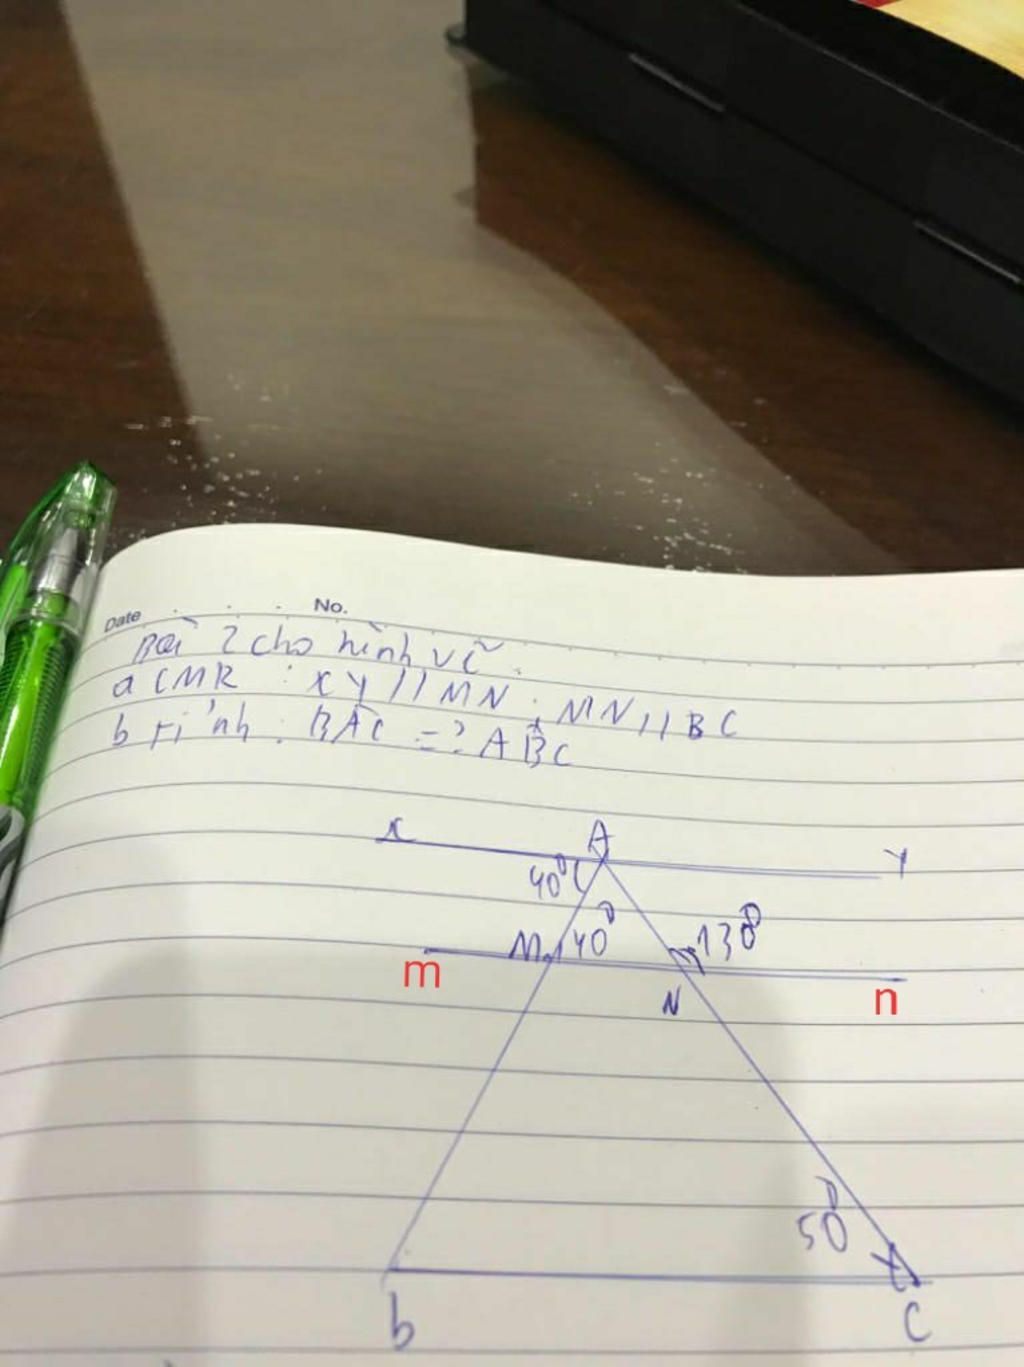 Date No.
Bài 2 cho hình vẽ.
a CMR : xy // MN ; MN // BC
b Tính : BÂC = ? AB̂C
x A y
40°
M 40° 130°
m n
N
50°
b C